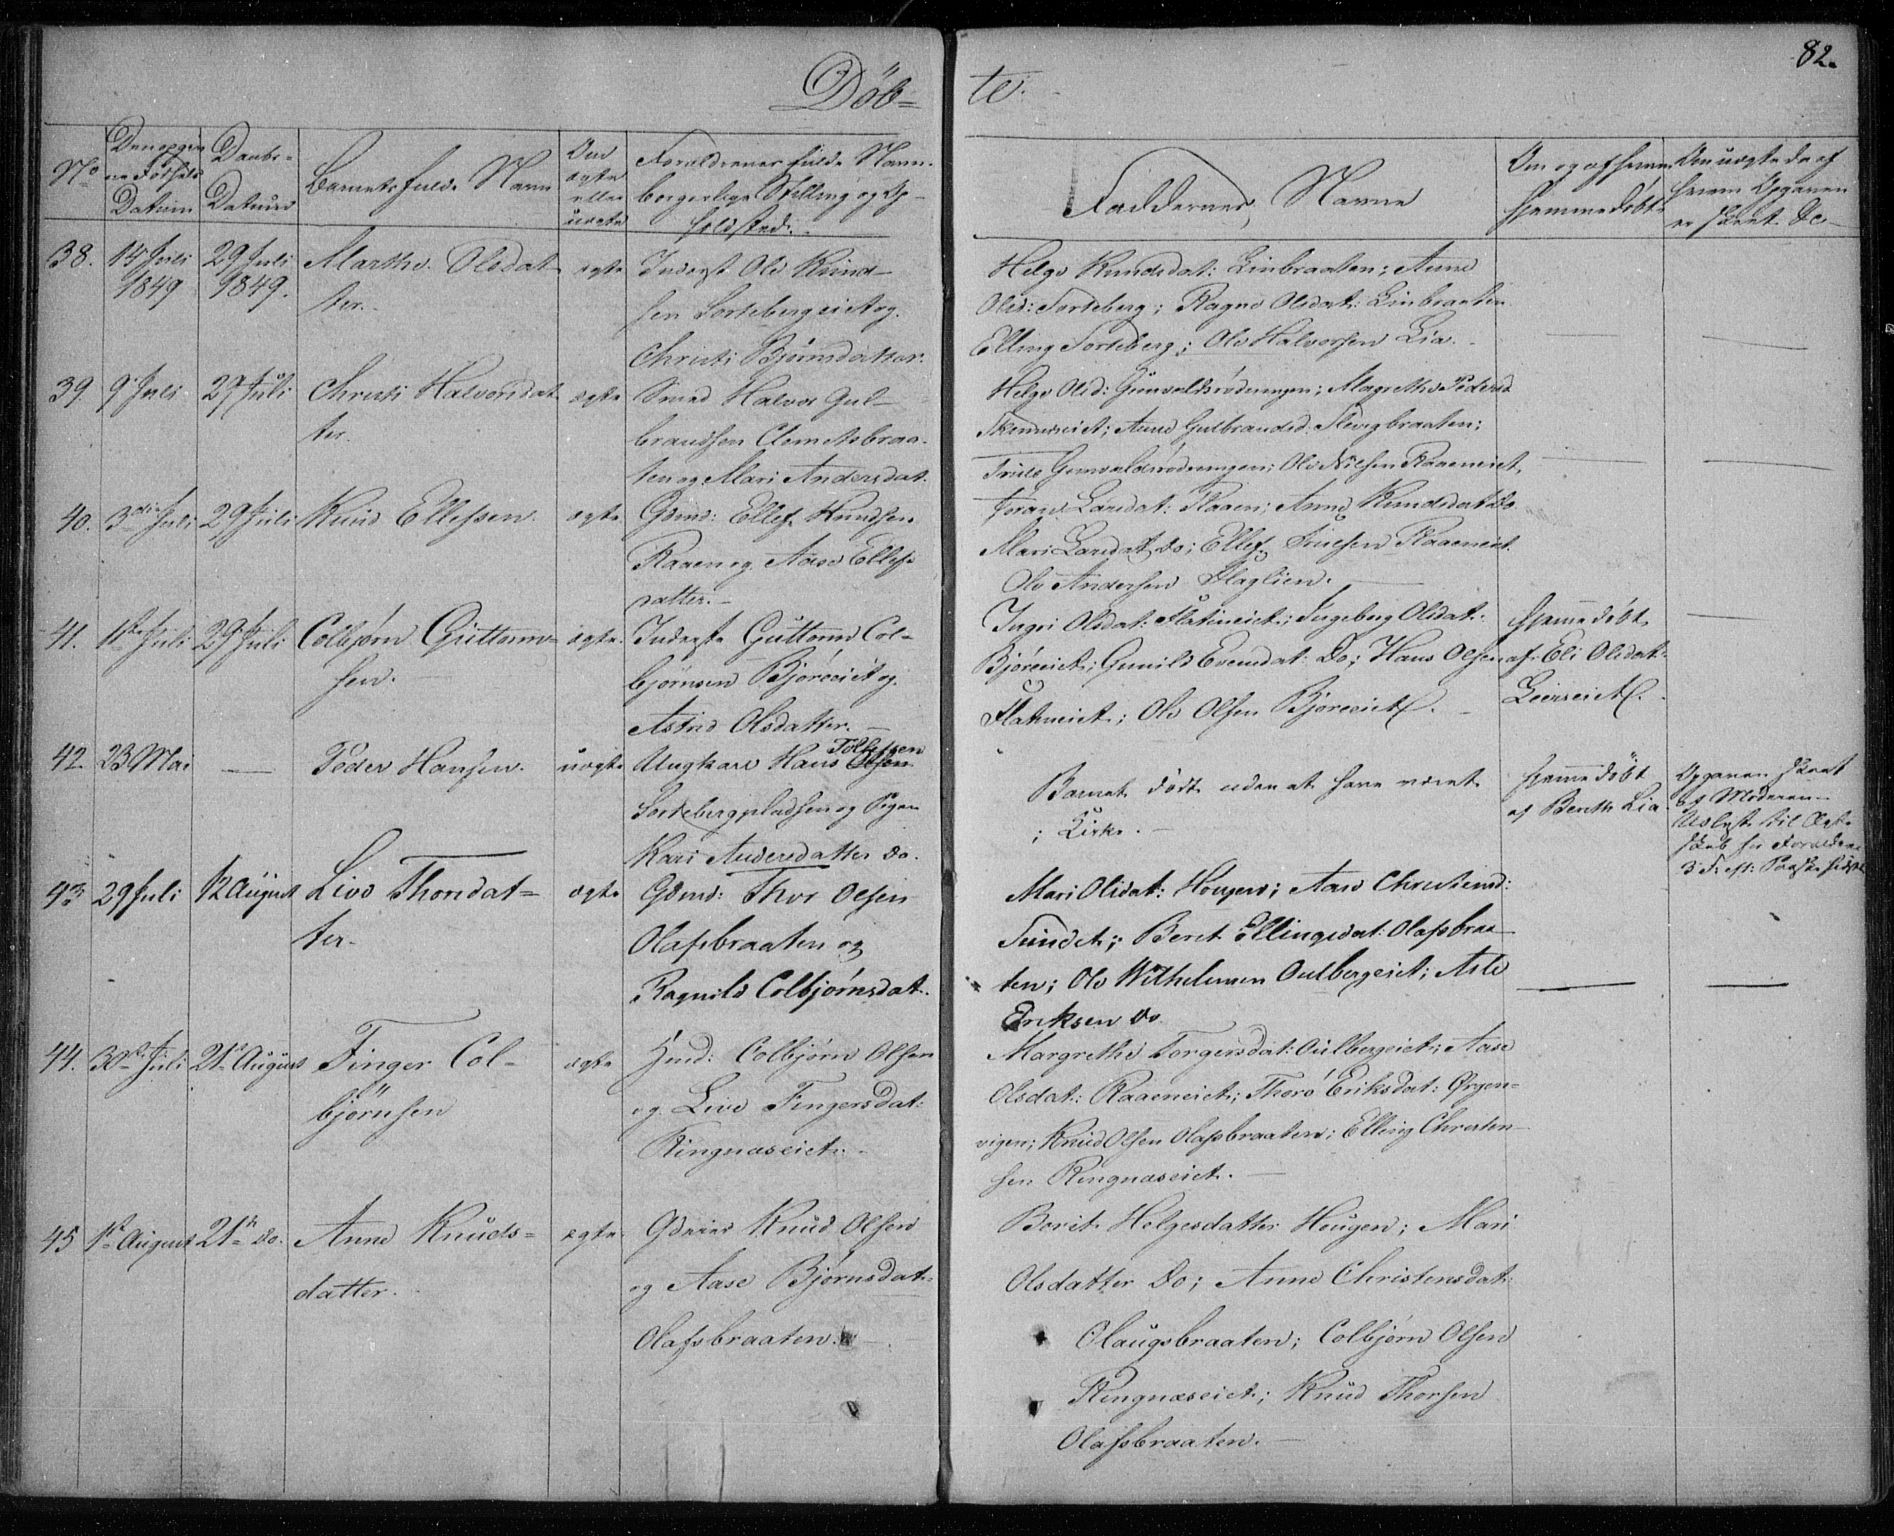 82.
Döb=
te.
No
Den opgivne Fødsels Datum
Daabs-Datum
Barnets fulde Navn
Om ægte eller uægte
Forældrenes fulde Navn, borgerlige Stilling og Opholdsted.
Faddernes Navne
Om og af hvem hjemmedøbt
Om uægte da af hvem Opgaven er skeet &c
38. 14 Juli 1849 29 Juli 1849.
Marthe Olsdat
ter.
ægte
Inderst Ole Knud
sen Sorteberg eiet og
Christi Bjørnsdatter.
Helge Knudsdat: Linbraaten; Anne
Olsd: Sorteberg; Ragne Olsdat: Linbraaten
Elling Sorteberg; Ole Halvorsen Lia.
39. 9 Juli 29 Juli
Christi Halvorsdat
ter.
ægte
Smed Halvor Gul-
brandsen Clemetsbraa-
ten og Mari Andersdat.
Helge Olsd: Gunvaldsrødningen; Magrethe Pedersd
Anne Gulbrandsd:
Truls Gunvaldsrødningen; Ole Nilsen Raaeneiet,
40. 3die Juli 29 Juli
Knud Ellefsen.
ægte
Gdmd: Ellef Knudsen
Raaen og Aase Ellefs
datter.-
Larsdat: Raaen; Anne Knudsdat Do
Mari Larsdat Do; Ellef Truesen Raaeneiet.
Ole Andersen Haglien.
41. 11te Juli 29 Juli
Colbjørn Guttorm-
sen.
ægte.
Inderste Guttorm Col-
bjørnsen Bjøreeiet og
Astrid Olsdatter.
Ingri Olsdat: Flatineiet; Ingeborg Olsdat:
Bjøreeiet; Gunild Evensdat: Do; Hans Olsen
Flatineiet; Ole Olsen Bjøreeiet.
Hjemmedøbt
af Eli Olsdat:
42. 23 Mai
Peder Hansen.
uægte
Tollefsen
Ungkarl Hans Olsen
Sortebergpladsen og Pigen
Kari Andersdatter do.
Barnet død uden at have været
i Kirke.
Hjemmedøbt
af Berethe Lia
Opgaven skeet
af Moderen
43. 29 Juli 12 August
Live Thorsdat=
ter.
ægte
Gdmd: Thor Olsen
Olafsbraaten og
Ragnild Colbjørnsdat.
Mari Olsdat: Hougen; Aase Christensd:
Sundet; Beret Ellingsdat: Olafsbraa
ten; Ole Wilhelmsen Oulbergeiet; Asle
Eriksen Do
44. 30te Juli 21 August
Finger Col-
bjørnsen
ægte
Hmd: Colbjørn Olsen
og Live Fingersdat:
Ringnæseiet.
Margrethe Torgersdat: Oulbergeiet; Aase
Olsdat: Raaeneiet; Thore Eriksdat: Ørgen=
vigen; Knud Olsen Olafsbraaten; Elling Christen-
sen Ringnæseiet.
45 1ste August 21de do.
Anne Knuds=
datter.
ægte.
Gdmd Knud Olsen
og Aase Bjørnsdat.
Olafsbraaten.
Berit Helgesdatter Hougen; Mari
Olsdatter Do; Anne Christensdat:
Olaugsbraaten; Colbjørn Olsen
Ringnæseiet; Knud Thorsen
Olafsbraaten.